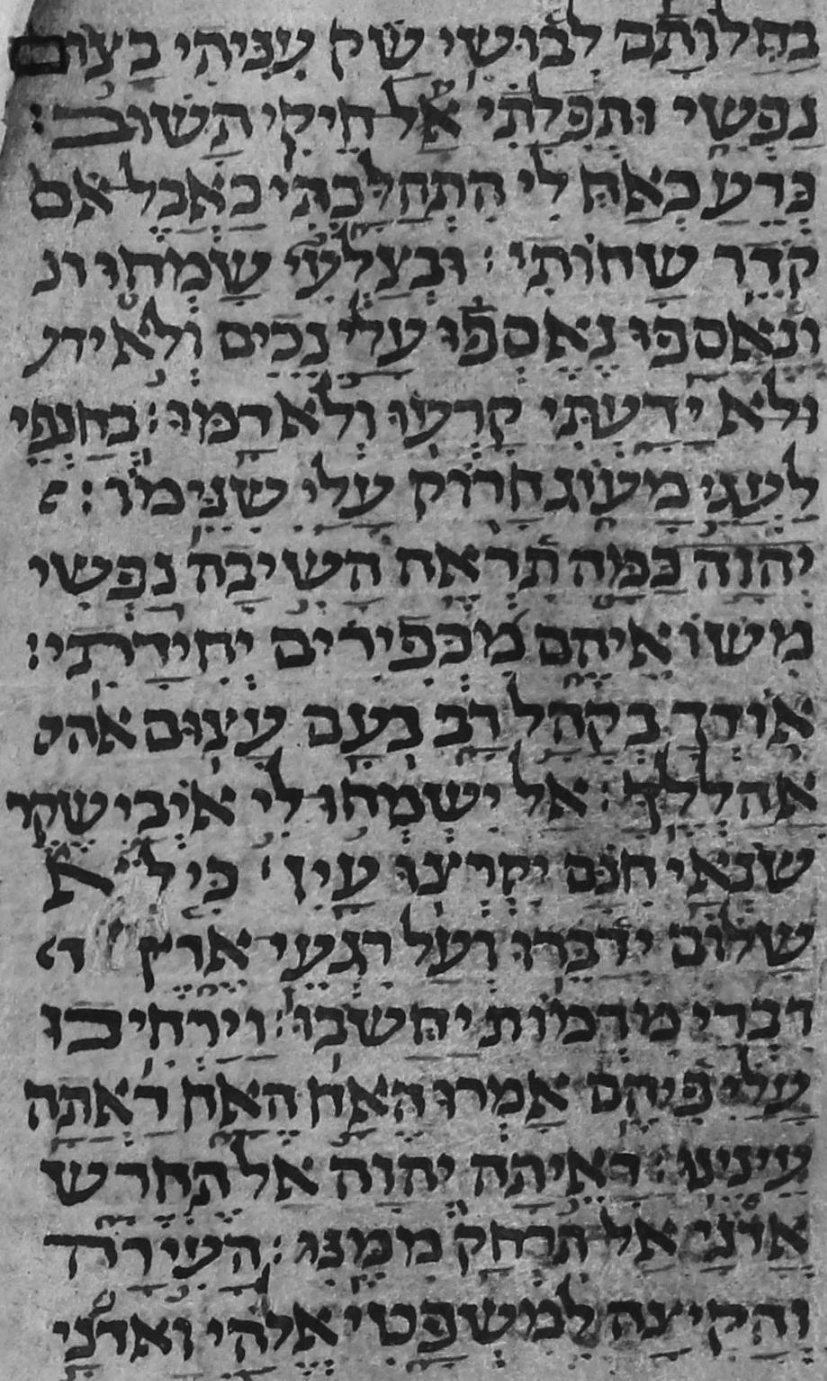 בחלותם לבושי שק עניתי בצום
נפשי ותפלתי אל חיקי תשוב :
כרע כאח לי התהלכתי כאבל אם
קדר שחותי : ובצלעי שמחו ונ
ונאספו נאספו עלי נכים ולא ידע
ולא ידעתי קרעו ולא דמו : בחנפי
לעגי מעוג חרוק עלי שנימו :
יהוה כמה תראה השיבה נפשי
משואיהם מכפירים יחידתי :
אודך בקהל רב בעם עצום אהל
אהללך : אל ישמחו לי איבי שקר
שנאי חנם יקרצו עין : כי לא
שלום ידברו ועל רגעי ארץ ד
דברי מרמות יחשבו : וירחיבו
עלי פיהם אמרו האח האח ראתה
עינינו : ראיתה יהוה אל תחרש
אדני אל תרחק ממנו : העירה
והקיצה למשפטי אלהי ואדני